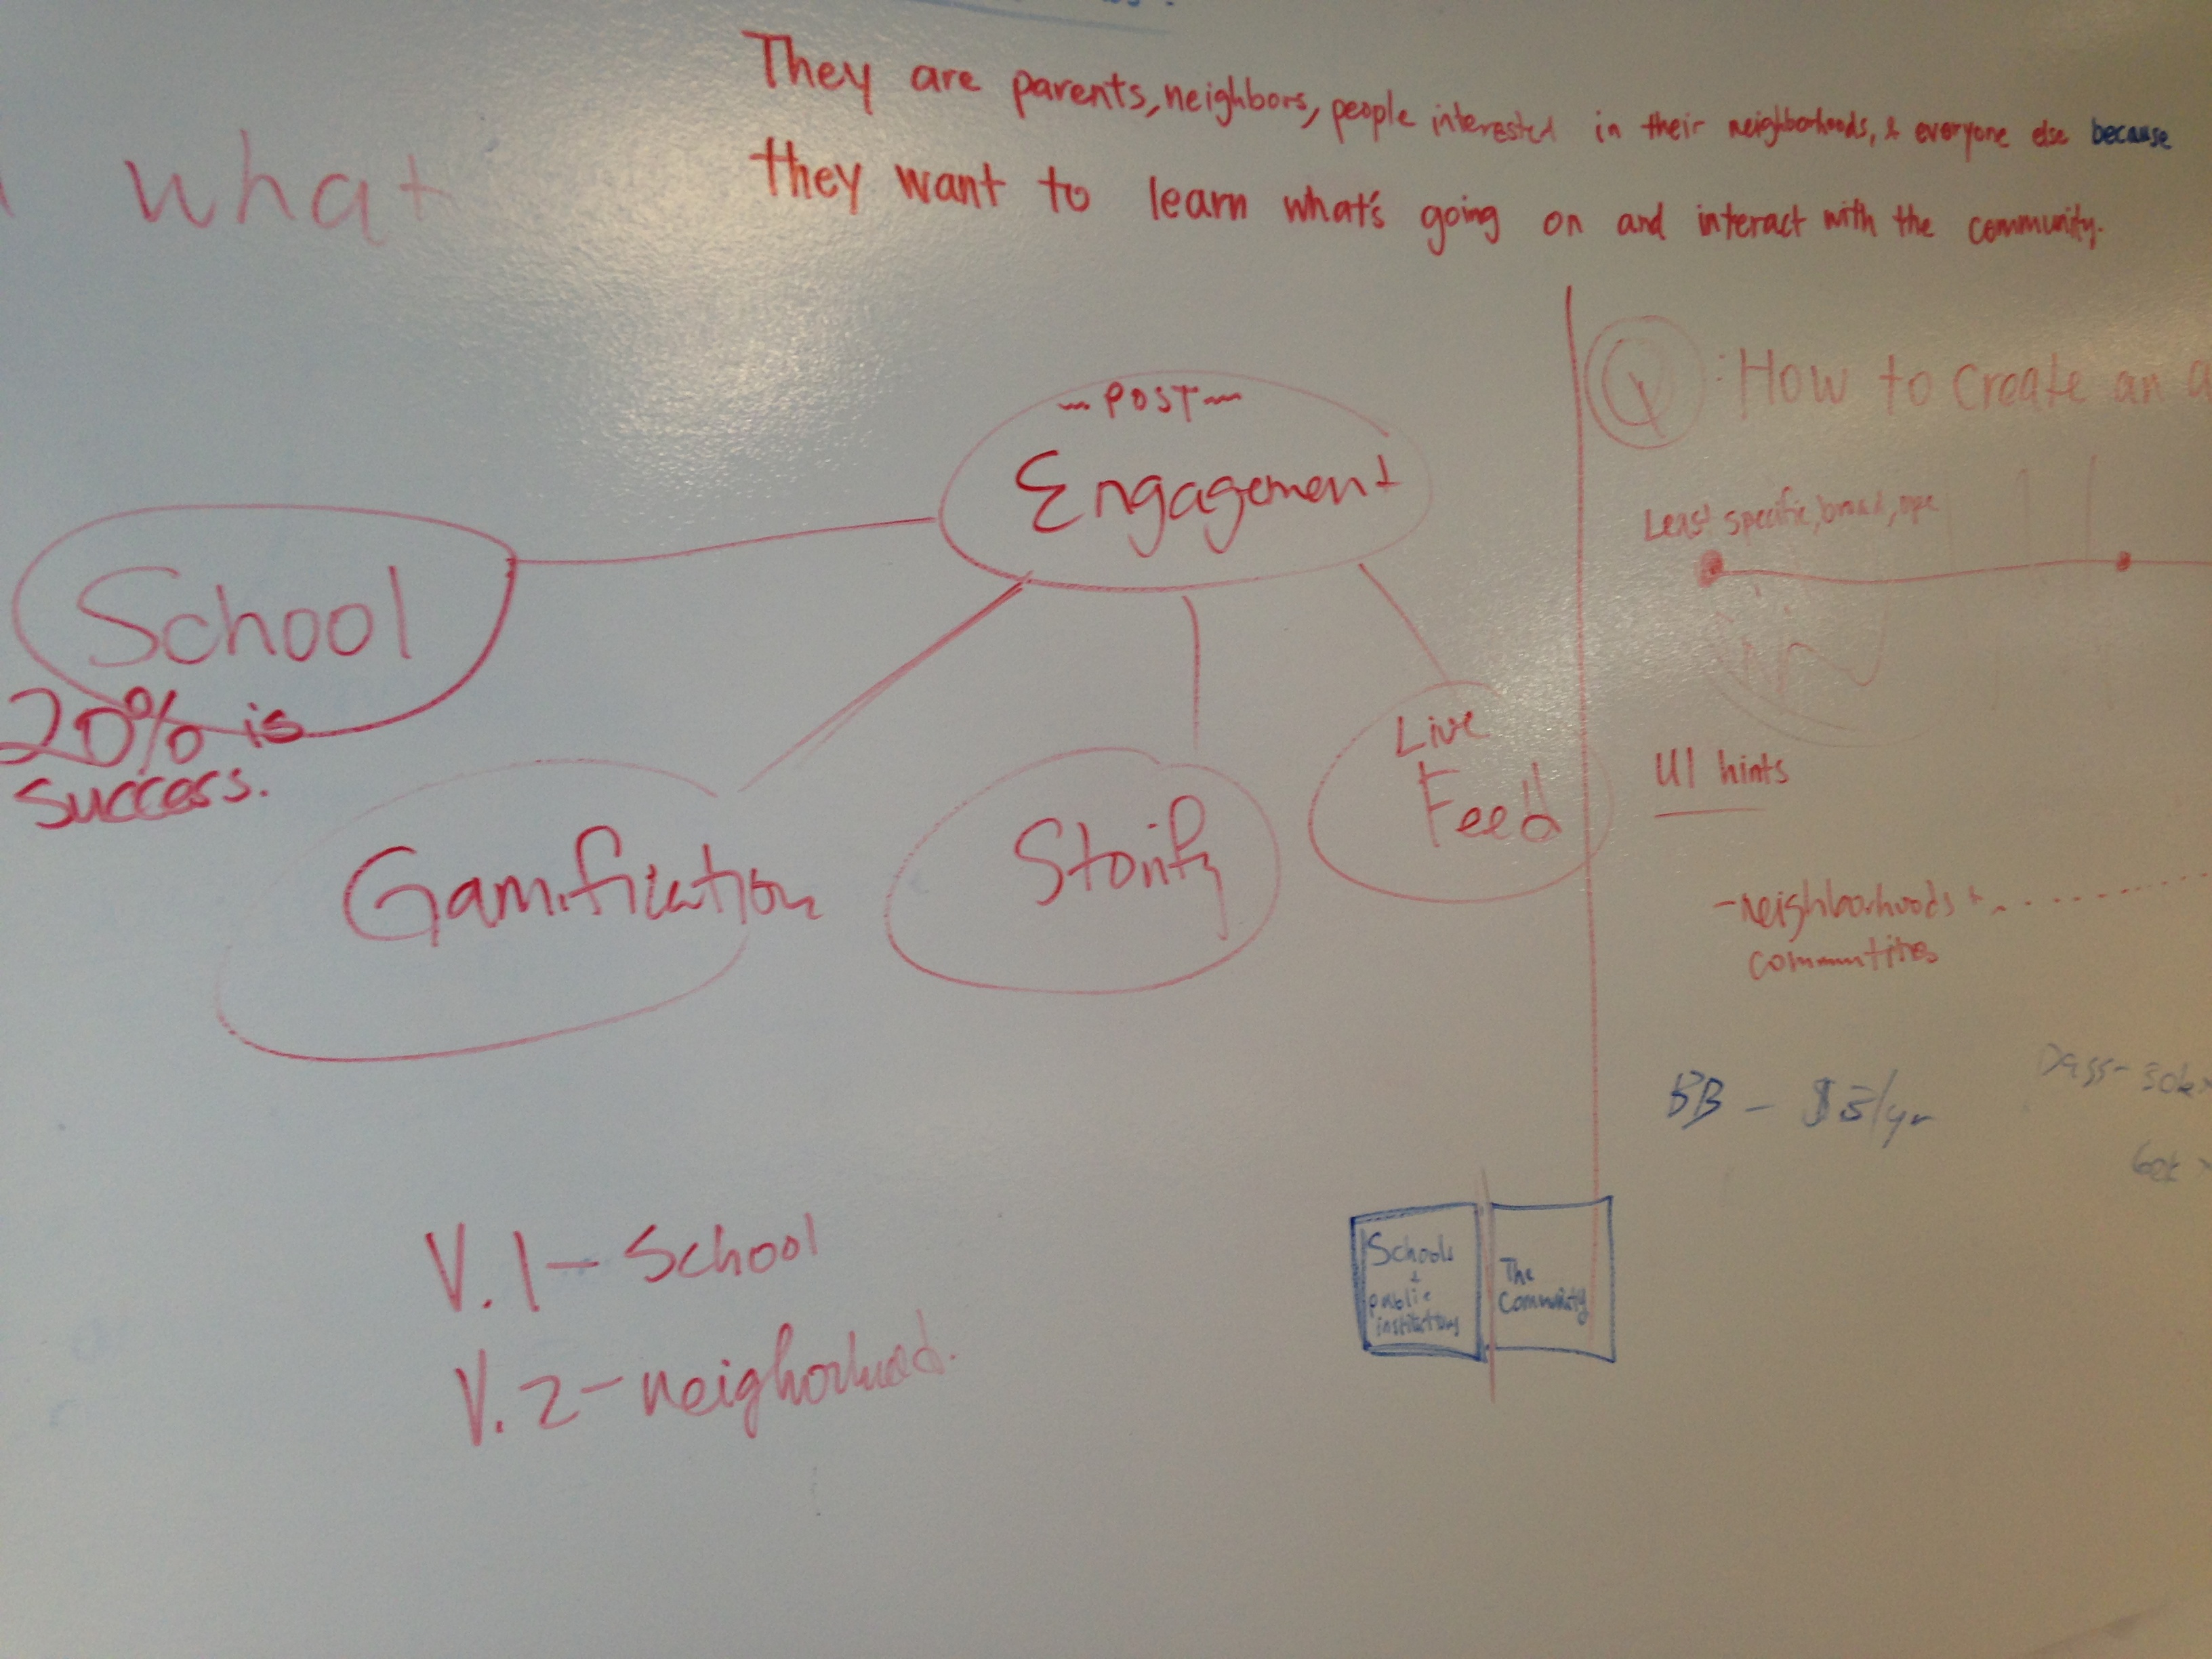 They are parents, neighbors, people interested in their neighborhoods, & everyone else because
they want to learn what's going on and interact with the community.
what
~POST~
Engagement
School
20% is
success.
Gamification
Storify
Live
Feed
V.1 - School
V.2 - neighorhood.
Q: How to create an
Least specific, broad, ope
UI hints
- neighborhoods +
communities
BB - $5/yr
Schools
+
public
institutions
The
Community